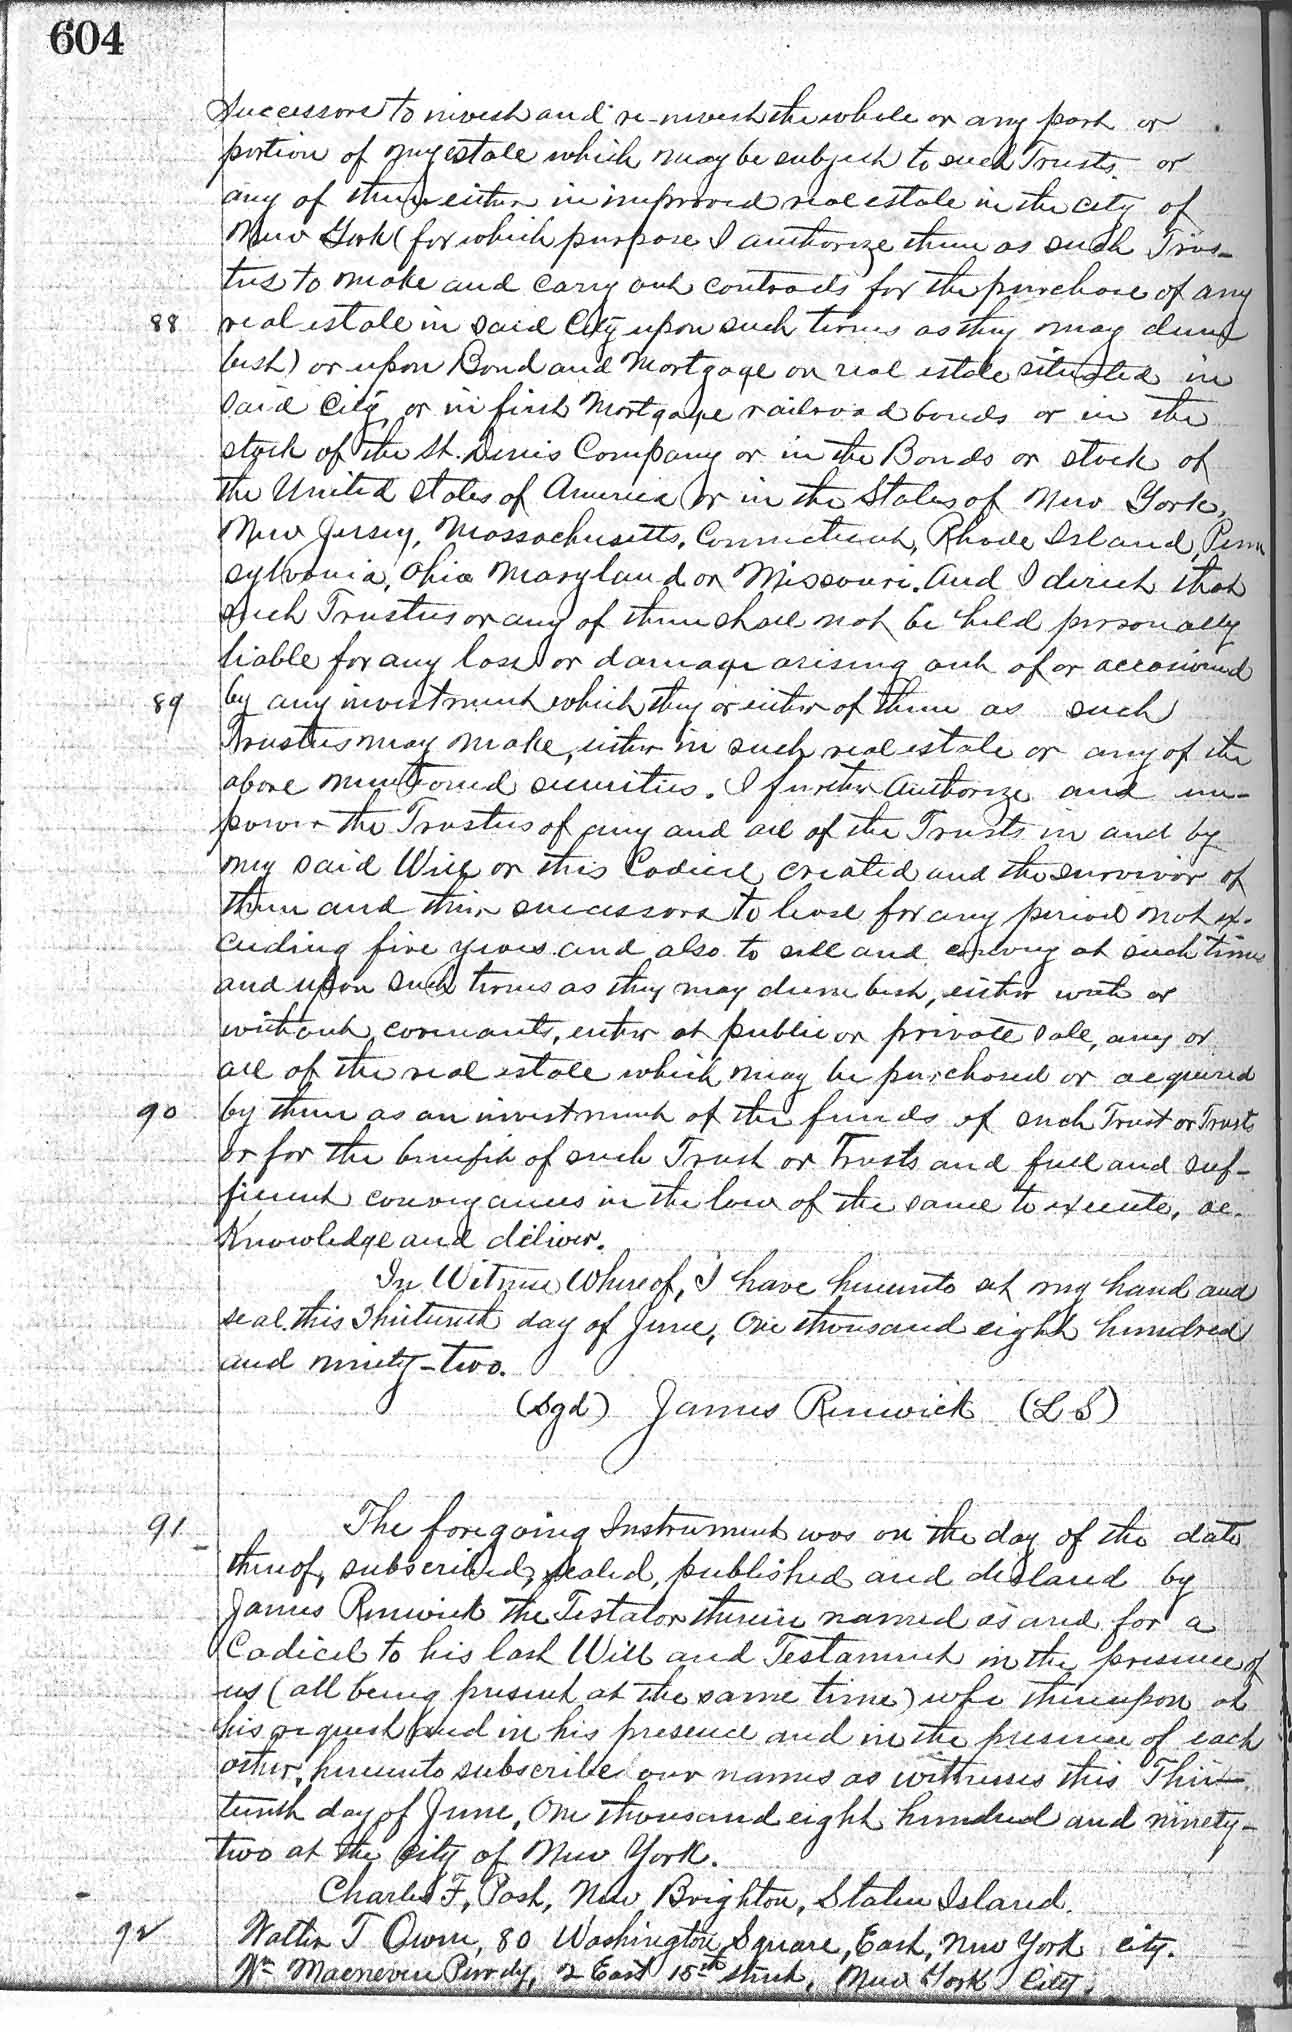 604
Successors to invest and re-invest the whole or any part or
portion of my estate which may be subject to such Trusts or
any of them either in improved real estate in the city of
New York (for which purpose I authorize them as such Trus-
tees to make and carry out contracts for the purchase of any
88 real estate in said City upon such terms as they may deem
best) or upon Bond and Mortgage on real estate situated in
said City, or in first Mortgage railroad bonds or in the
stock of the St. Denis Company or in the Bonds or stock of
the United States of America or in the States of New York,
New Jersey, Massachusetts, Connecticut, Rhode Island, Penn
sylvania, Ohio Maryland or Missouri. And I direct that
such Trustees or any of them shall not be held personally
liable for any loss or damage arising out of or occasioned
89 by any investment which they or either of them as such
Trustees may make, either in such real estate or any of the
above mentioned securities. I further Authorize and em-
power the Trustees of any and all of the Trusts in and by
my said Will or this Codicil created and the survivor of
them and their successors to lease for any period not ex-
ceeding five years and also to sell and convey at such times
and upon such terms as they may deem best, either with or
without covenants, either at public or private sale, any or
all of the real estate which may be purchased or acquired
90 by them as an investment of the funds of such Trust or Trusts
or for the benefit of such Trust or Trusts and full and suf-
ficient conveyances in the law of the same to execute, ac-
knowledge and deliver.
In Witness Whereof, I have hereunto set my hand and
seal this Thirteenth day of June, One thousand eight hundred
and ninety-two.
(Sgd) James Renwick (L S)
91 The foregoing Instrument was on the day of the date
thereof, subscribed, sealed, published and declared by
James Renwick the Testator therein named as and for a
Codicil to his last Will and Testament in the presence of
us (all being present at the same time) who thereupon at
his request and in his presence and in the presence of each
other, hereunto subscribe our names as witnesses this Thir-
teenth day of June, One thousand eight hundred and ninety-
two at the City of New York.
Charles F. Post, New Brighton, Staten Island.
92 Walter T Owen, 80 Washington Square, East, New York City.
Wm Macneven Purdy, 2 East 15th street, New York City.